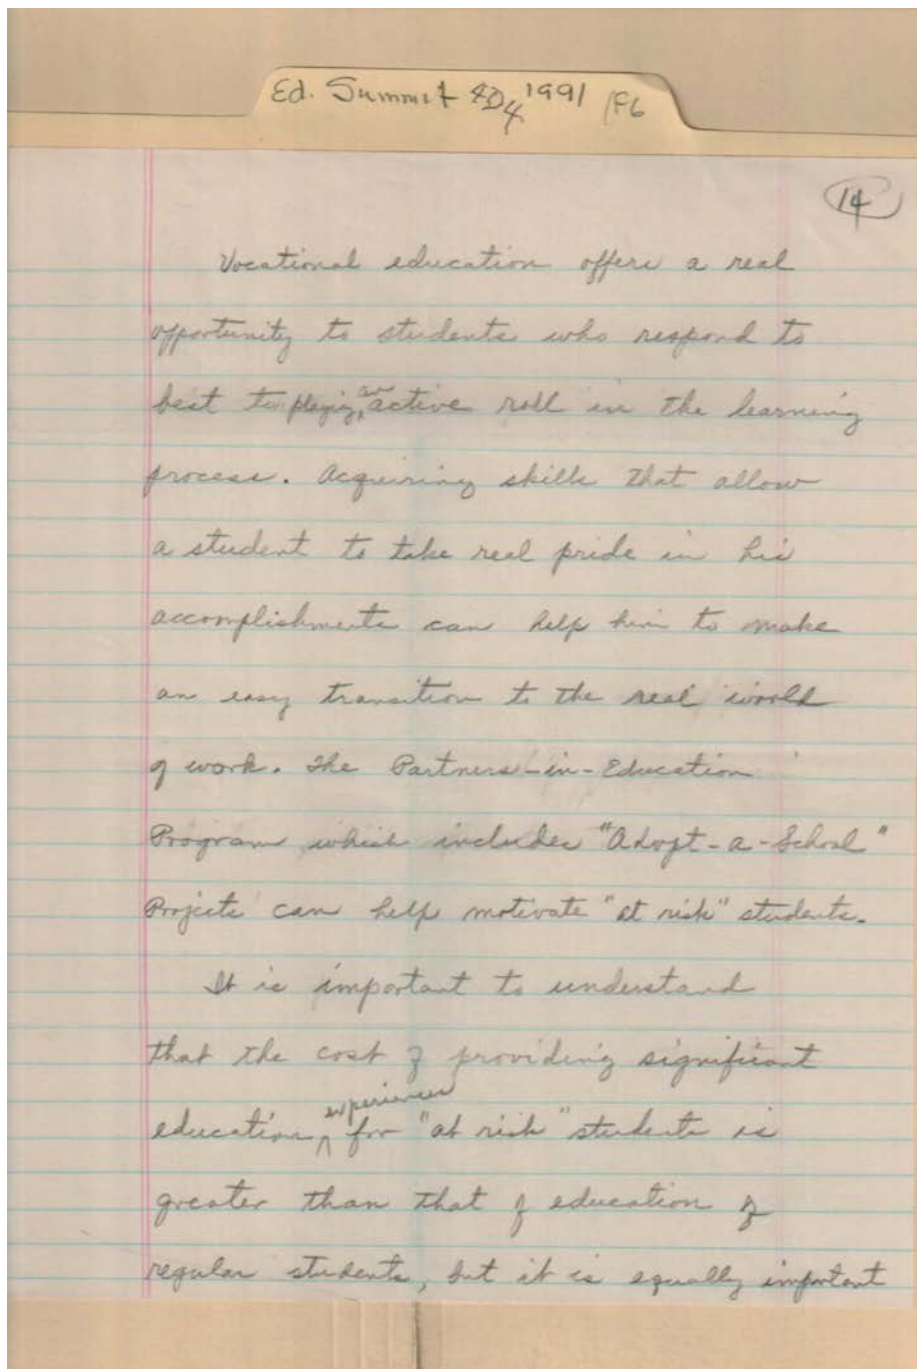 Ed. Summit 4D4 1991 /F6
14
Vocational education offers a real
opportunity to students who respond to
best to playing an active roll in the learning
process. Acquiring skills that allow
a student to take real pride in his
accomplishments can help him to make
an easy transition to the real world
of work. The Partners-in-Education
Program which includes "Adopt-a-School"
Projects can help motivate "at risk" students.
It is important to understand
that the cost of providing significant
education experiences for "at risk" students is
greater than that of education of
regular students, but it is equally important